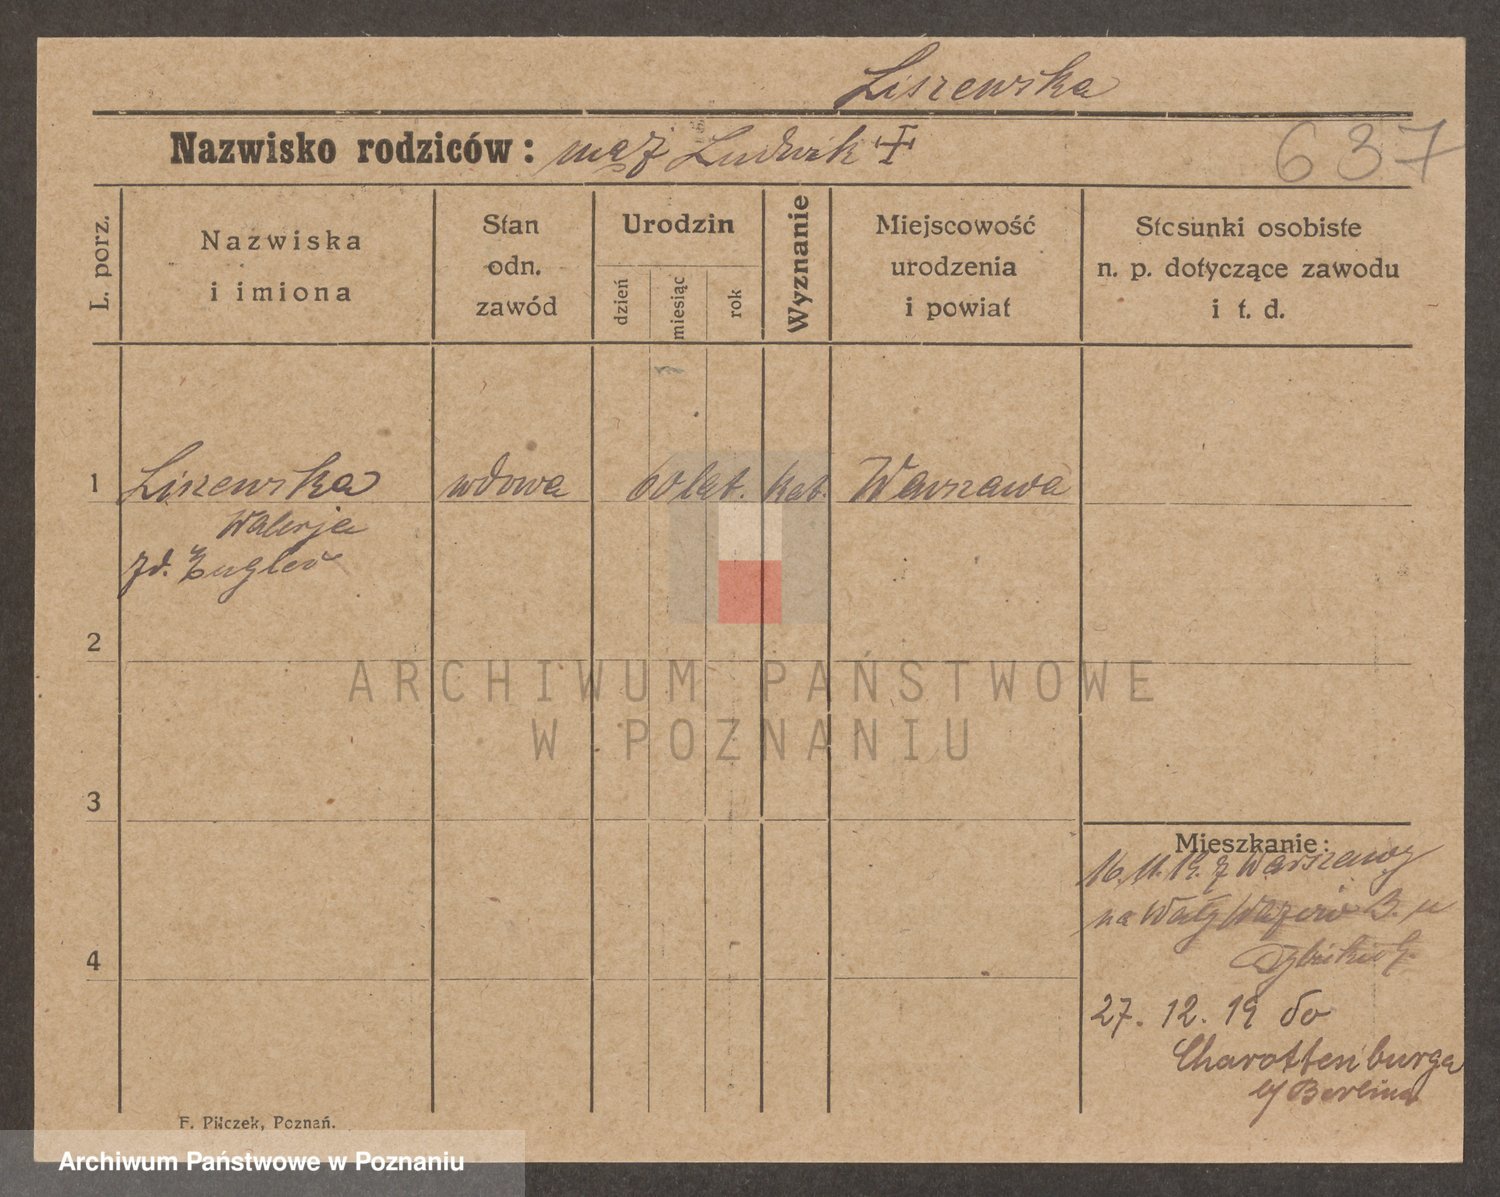 Liszewska
Nazwisko rodziców: mąż Ludwik
637
L. porz.
Nazwiska
i imiona
Stan
odn.
zawód
Urodzin
dzień
miesiąc
rok
Wyznanie
Miejscowość
urodzenia
i powiat
Stosunki osobiste
n. p. dotyczące zawodu
i t. d.
1 Liszewska wdowa 60 lat. kat. Warszawa
Walerja
zd. Engler
2
ARCHIWUM PAŃSTWOWE
W POZNANIU
3
Mieszkanie:
16. 11. 19. z Warszawy
na Wały 3. u
4
27. 12. 19 do
Charottenburga
b/ Berlina
F. Pilczek, Poznań.
Archiwum Państwowe w Poznaniu